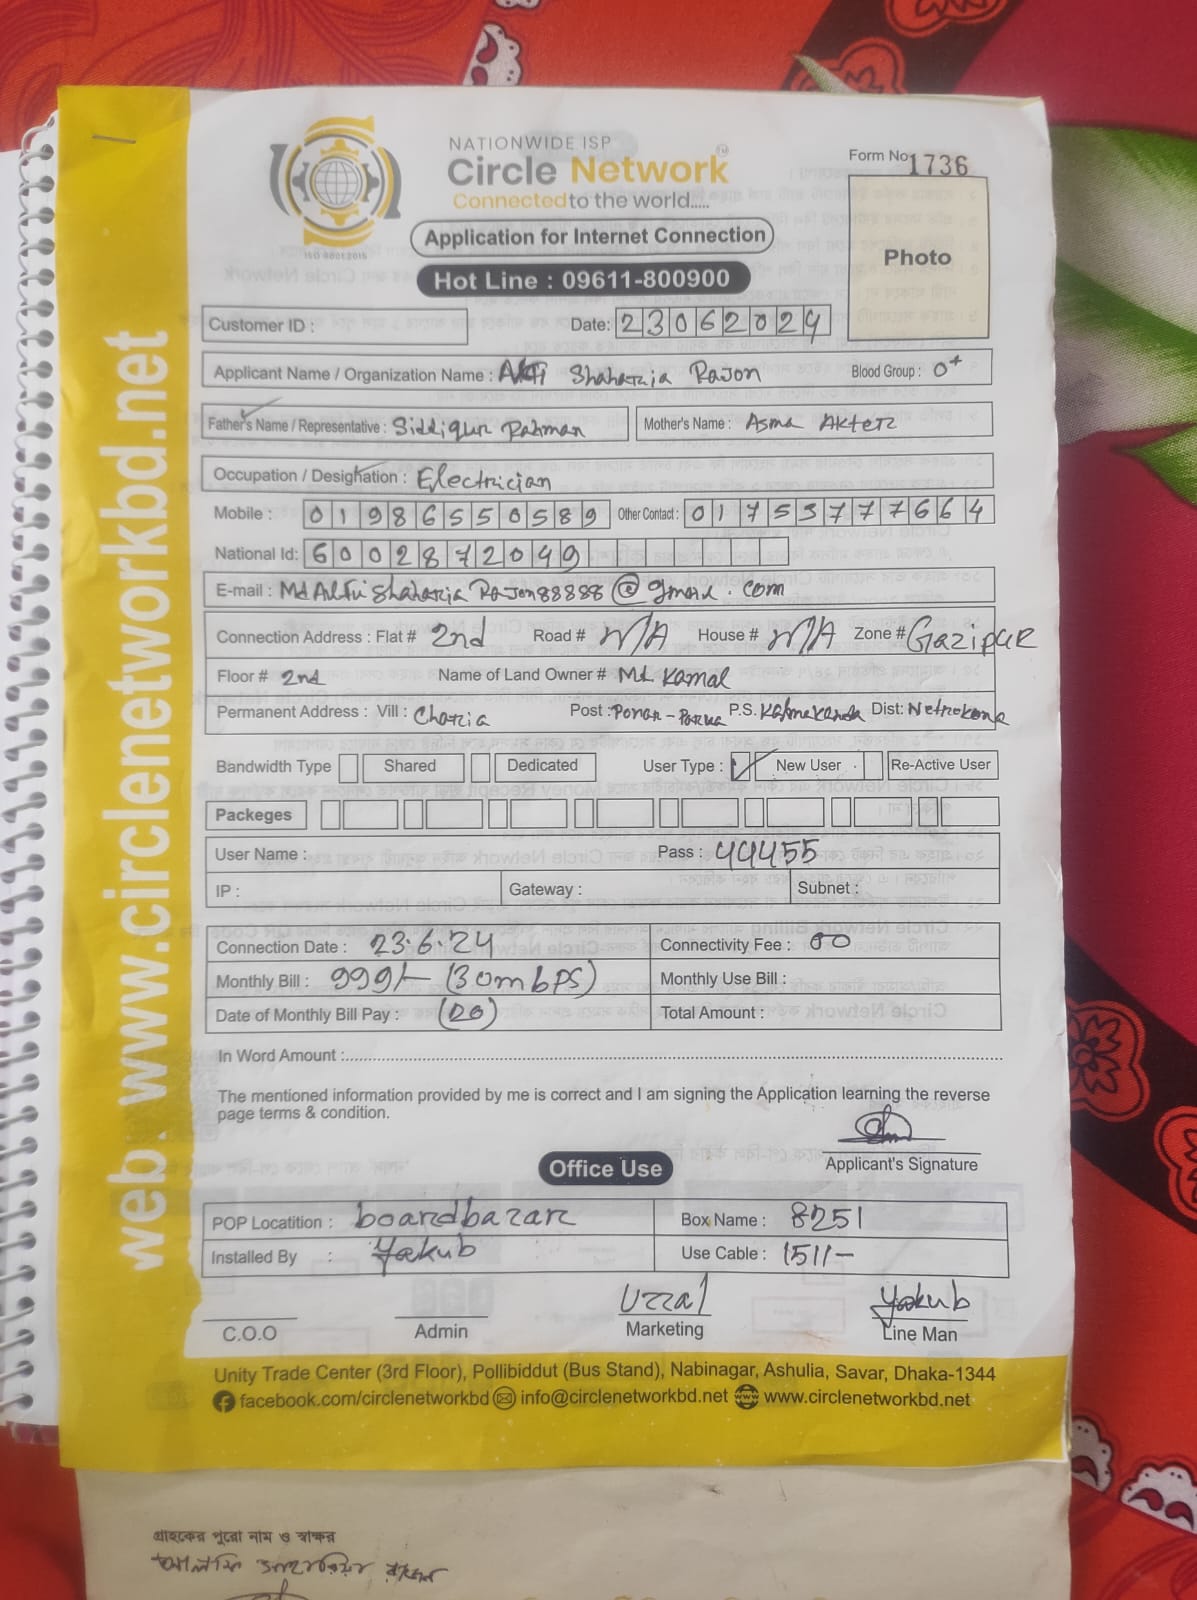 NATIONWIDE ISP
Circle Network
Connected to the world.....
ISO 9001:2015
Form No 1736
Application for Internet Connection
Photo
Hot Line : 09611-800900
Customer ID : Date: 23062024
Applicant Name / Organization Name : Shaharia Rajon Blood Group : O+
Father's Name / Representative : Siddiqur Rahman Mother's Name : Asma Akter
Occupation / Designation : Electrician
Mobile : 01986550589 Other Contact : 01753777664
National Id: 6002872049
E-mail : MdAlfiShahariaRajon88888@gmail.com
Connection Address : Flat # 2nd Road # N/A House # N/A Zone # Gazipur
Floor # 2nd Name of Land Owner # Md Kamal
Permanent Address : Vill : Charia Post : P.S. Kalmakanda Dist: Netrokona
Bandwidth Type Shared Dedicated User Type : New User Re-Active User
Packeges
User Name : Pass : 44455
IP : Gateway : Subnet :
Connection Date : 23.6.24 Connectivity Fee : 00
Monthly Bill : 999/- (30mbps) Monthly Use Bill :
Date of Monthly Bill Pay : (20) Total Amount :
In Word Amount :
The mentioned information provided by me is correct and I am signing the Application learning the reverse
page terms & condition.
Applicant's Signature
Office Use
POP Locatition : boardbazar Box Name : 8251
Installed By : Yakub Use Cable : 151/-
Uzzal Yakub
C.O.O Admin Marketing Line Man
Unity Trade Center (3rd Floor), Pollibiddut (Bus Stand), Nabinagar, Ashulia, Savar, Dhaka-1344
facebook.com/circlenetworkbd info@circlenetworkbd.net www.circlenetworkbd.net
web: www.circlenetworkbd.net
গ্রাহকের পুরো নাম ও স্বাক্ষর
আলফি শাহারিয়া রাজন